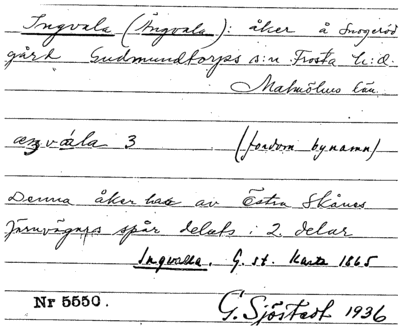 Ingvala (Ängvala): åker å Snogeröd
gård Gudmundtorps s:n Frosta h:d.
Malmöhus län.
æŋvála 3 (fordom bynamn)
Denna åker har av Östra Skånes
Järnvägars spår delats i 2. delar
Ingvalla. G. st. karta 1865
Nr 5550. G. Sjöstedt 1936